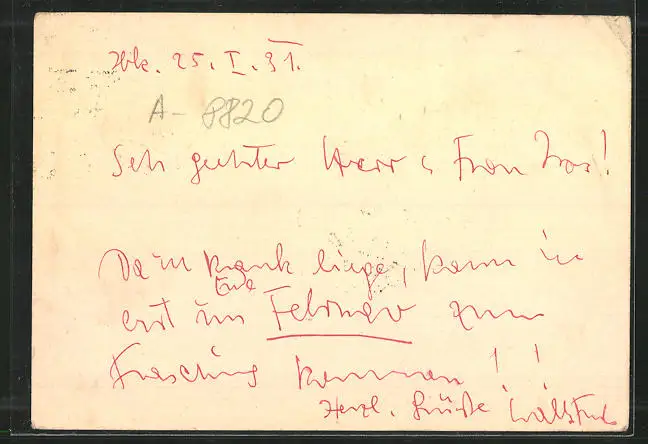 25. I. 31.
A-8820
Seh geehrter Herr u Frau
Da ich krank liege, kann ich
Ende
erst im Februar zum
Fasching kommen!!
Herzl. Grüße